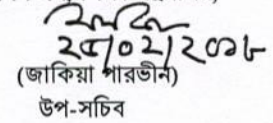 ২৫/০২/২০১৮
(জাকিয়া পারভীন)
উপ-সচিব